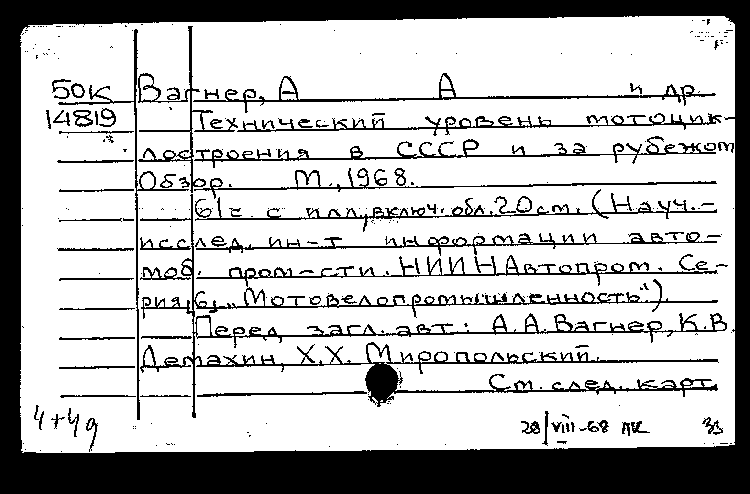 50К Вагнер, А А и др
14819 Технический уровень мотоцик-
лостроения в СССР и за рубежом
Обзор. М., 1968.
61 с. с илл., включ. обл. 20 см. (Науч.-
исслед. ин-т информации авто-
моб. пром-сти. НИИНАвтопром. Се-
рия, 6, „Мотовелопромышленность").
Перед загл. авт.: А.А. Вагнер, К.В.
Демахин, Х.Х. Миропольский.
См. след. карт.
4+4д
28/viii-68 лк